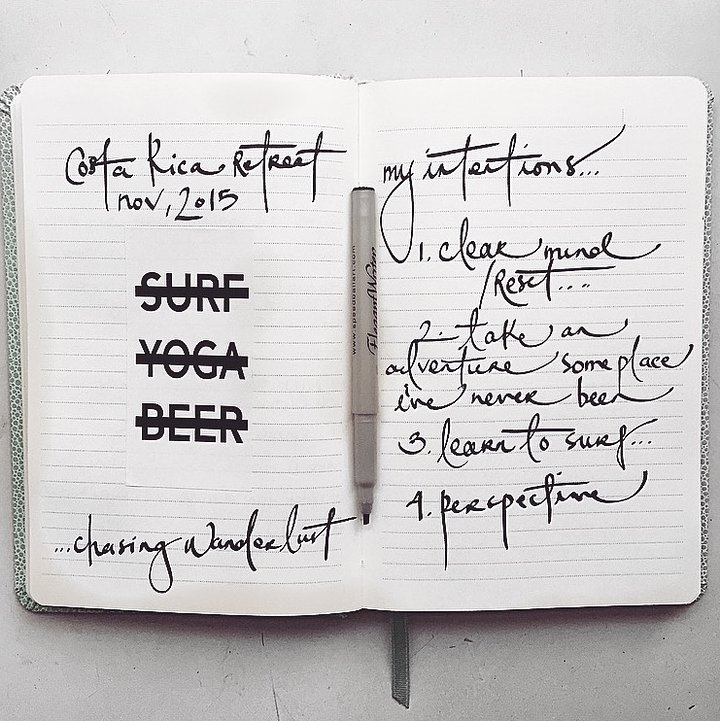 Costa Rica Retreat
nov, 2015
SURF
YOGA
BEER
...chasing wanderlust
www.speedballart.com
Elegant Writer
my intentions...
1. clear mind
/Reset....
2. take an
adventure someplace
i've never been
3. learn to surf...
4. perspective